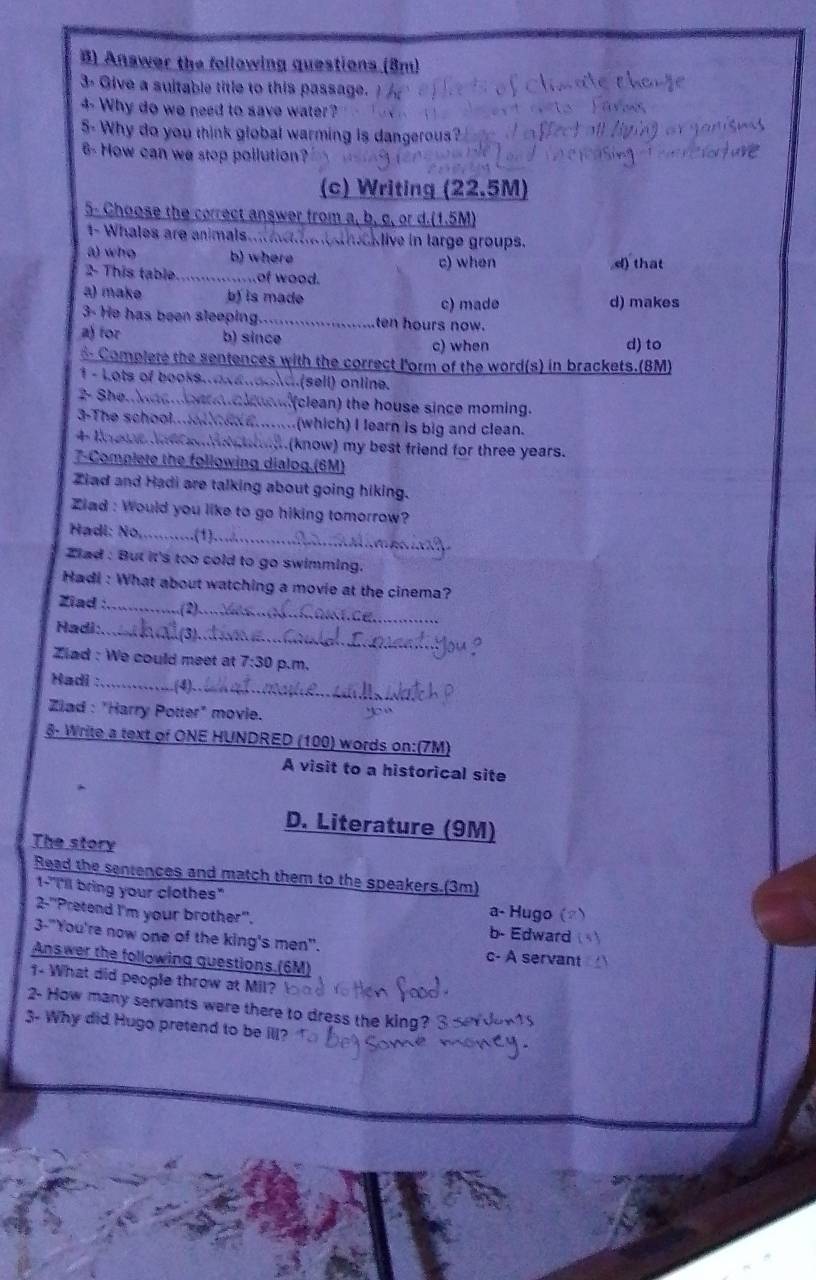 B) Answer the following questions.(8m)
3- Give a suitable title to this passage. The effects of climate change
4- Why do we need to save water? Turn the desert into farms
5- Why do you think global warming is dangerous? it affect all living organisms
6- How can we stop pollution? by using renewable and increasing temperature
energy
(c) Writing (22.5M)
5- Choose the correct answer from a, b, c, or d.(1.5M)
1- Whales are animals.....................live in large groups.
a) who b) where c) when d) that
2- This table.................of wood.
a) make b) is made c) made d) makes
3- He has been sleeping......................ten hours now.
a) for b) since c) when d) to
6- Complete the sentences with the correct form of the word(s) in brackets.(8M)
1 - Lots of books...are...sold..(sell) online.
2- She...has...been..(clean) the house since morning.
3-The school................(which) I learn is big and clean.
4- ................(know) my best friend for three years.
7-Complete the following dialog.(6M)
Ziad and Hadi are talking about going hiking.
Ziad : Would you like to go hiking tomorrow?
Hadi: No,..........(1)..............go swimming.
Ziad : But it's too cold to go swimming.
Hadi : What about watching a movie at the cinema?
Ziad :..............(2)....Yes..of..Cource............
Hadi:...what(3)..time...Could..I..meet you?
Ziad : We could meet at 7:30 p.m.
Hadi :..............(4)..what..movie...will..watch?
you
Ziad : "Harry Potter" movie.
8- Write a text of ONE HUNDRED (100) words on:(7M)
A visit to a historical site
D. Literature (9M)
The story
Read the sentences and match them to the speakers.(3m)
1-"I'll bring your clothes"
2-"Pretend I'm your brother". a- Hugo (2)
3-"You're now one of the king's men". b- Edward
Answer the following questions.(6M) c- A servant
1- What did people throw at Mil? bad rotten food.
2- How many servants were there to dress the king? 3 servants
3- Why did Hugo pretend to be ill? To beg some money.